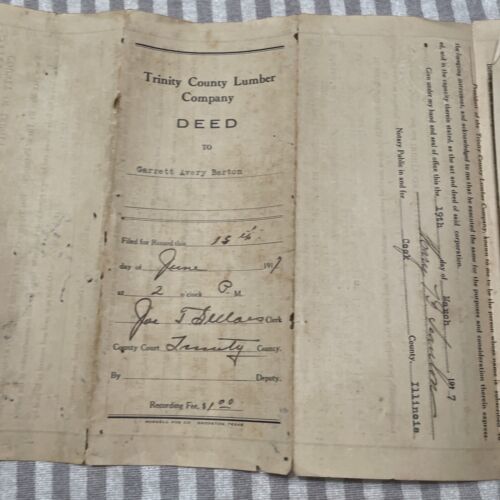 Trinity County Lumber
Company
DEED
TO
Garrett Avery Barton
Filed for Record this 15th
day of June 1917
at 2 o'clock P. M.
Joe T Clerk
County Court Trinity County.
By Deputy.
Recording Fee, $1.00
President of the Trinity County Lumber Company, known to me to be the person whose name is
the foregoing instrument, and acknowledged to me that he executed the same for the purposes and consideration therein express-
ed, and in the capacity therein stated, as the act and deed of said corporation.
Give under my hand and seal of office this the 19th day of March 1917
Notary Public in and for Cook County, Illinois